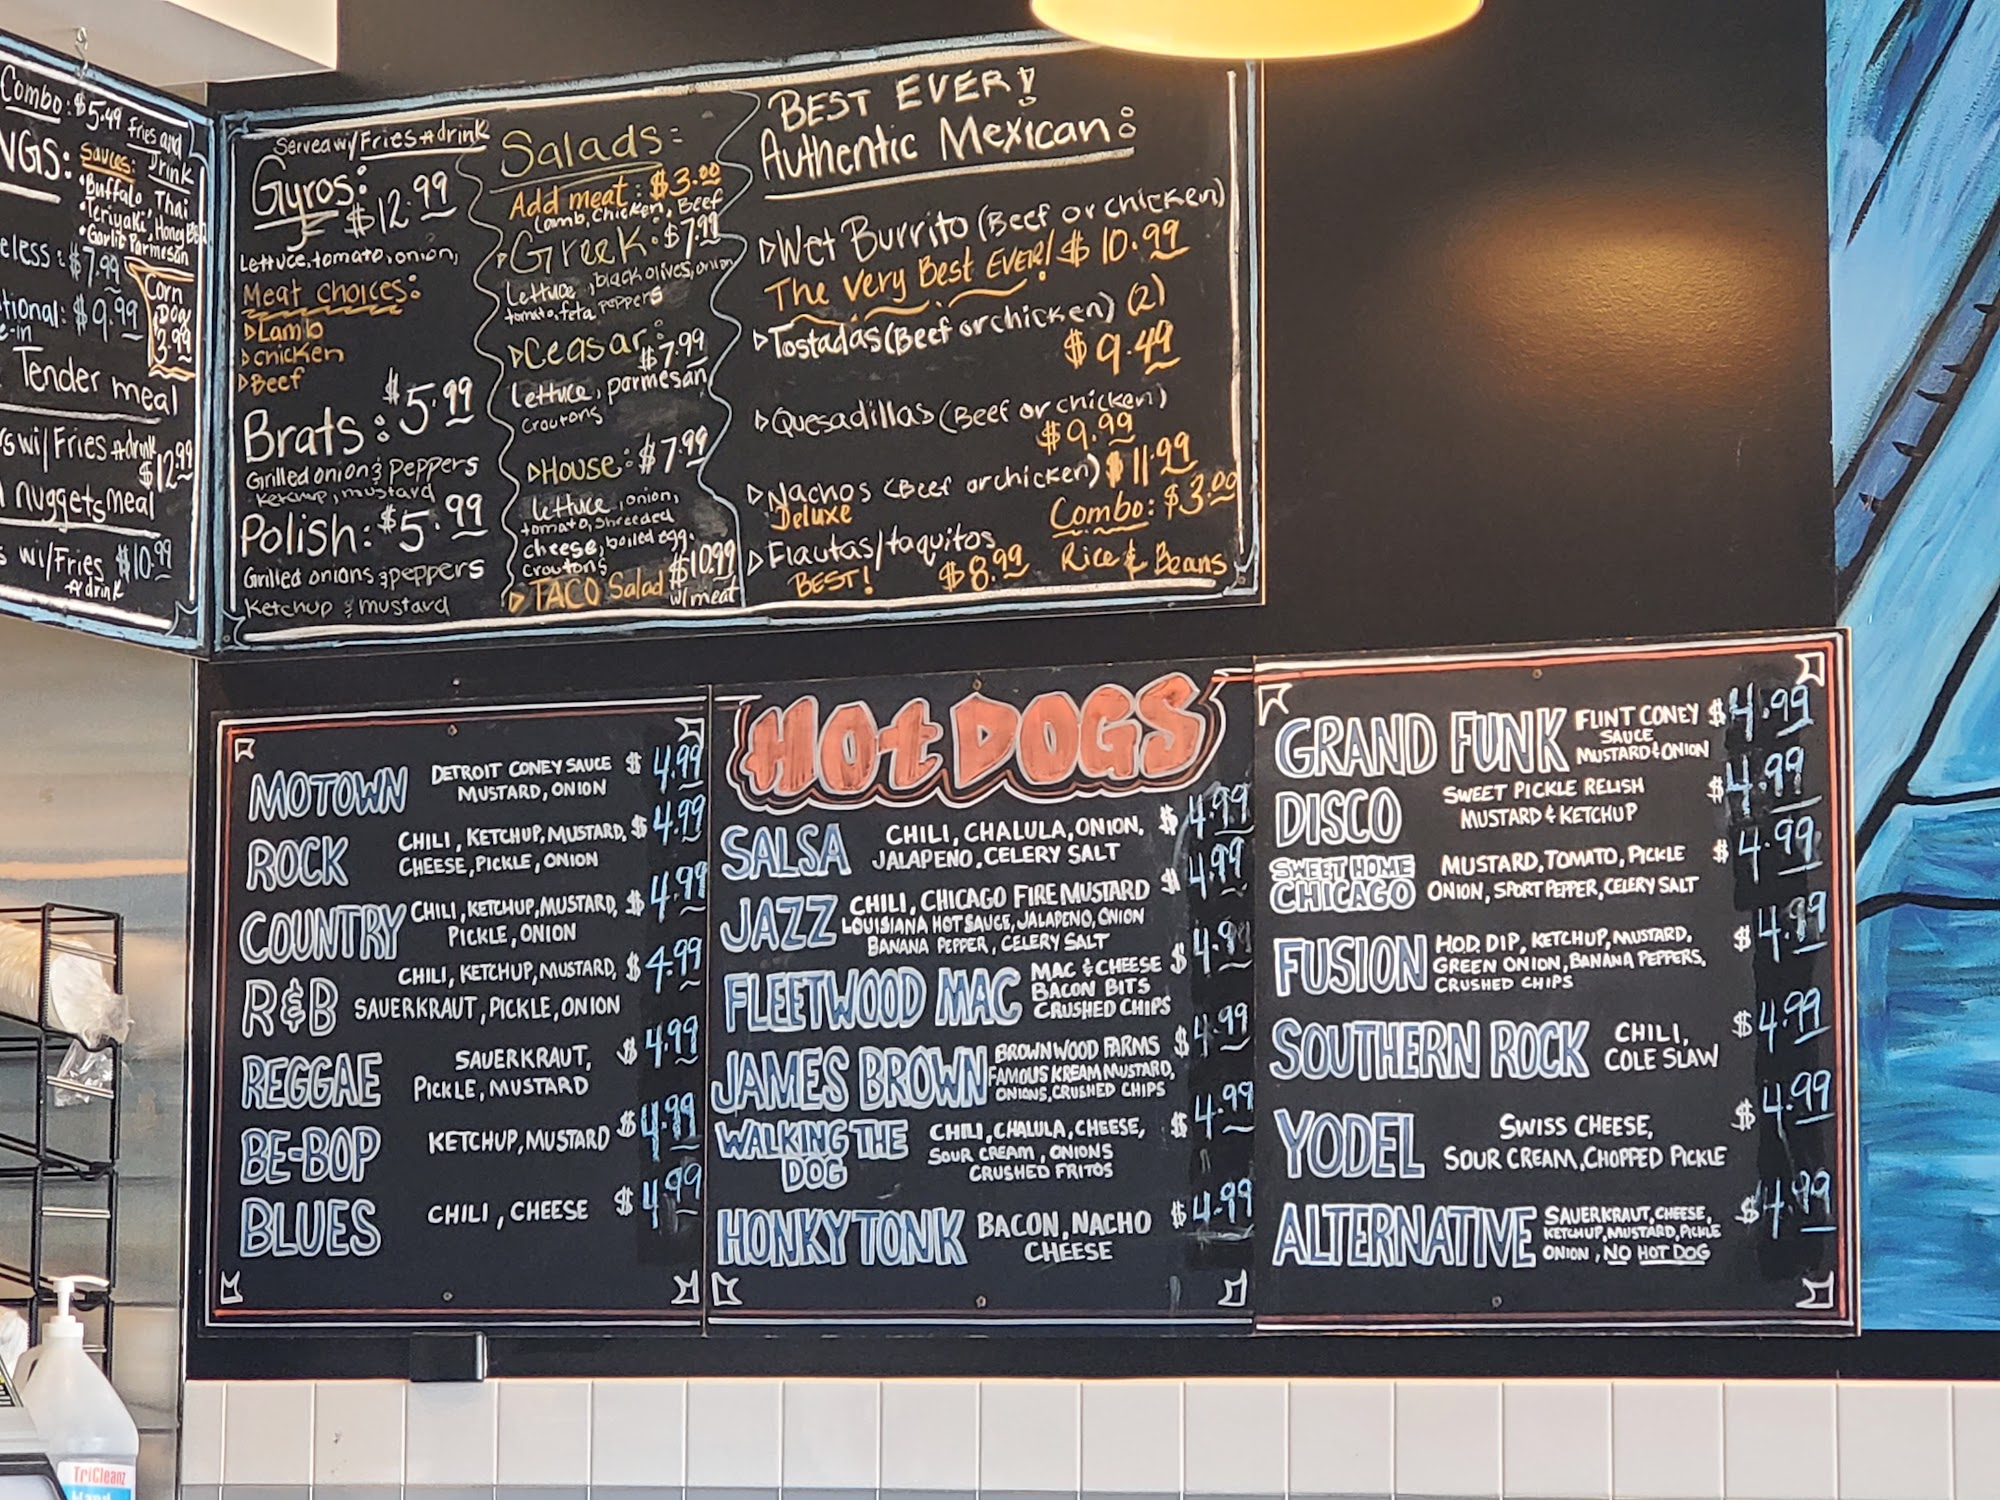 Combo: $5.49 Fries and
Drink
NGS:
Sauces:
•Buffalo, Thai
•Teriyaki, Honey BBQ
•Garlic Parmesan
eless: $7.99
tional: $9.99
e-in
Corn
Dog
3.99
Tender meal
s w/Fries + drink
$12.99
nuggets meal
s w/Fries $10.99
+ drink
Served w/ Fries + drink
Gyros:
$12.99
Lettuce, tomato, onion,
Meat choices:
▷Lamb
▷chicken
▷Beef
Brats: $5.99
Grilled onion & peppers
Ketchup, mustard
Polish: $5.99
Grilled onions & peppers
Ketchup & mustard
Salads:
Add meat: $3.00
Lamb, Chicken, Beef
▷Greek: $7.99
Lettuce, black olives, onion
tomato, feta peppers
▷Ceasar:
$7.99
lettuce, parmesan
croutons
▷House: $7.99
lettuce, onion,
tomato, shreeded
cheese, boiled egg.
croutons
▷TACO Salad $10.99
w/ meat
BEST EVER!
Authentic Mexican:
▷Wet Burrito (Beef or chicken)
The Very Best EVER! $10.99
▷Tostadas (Beef or chicken) (2)
$9.49
▷Quesadillas (Beef or chicken)
$9.99
▷Nachos (Beef or chicken) $11.99
Deluxe
▷Flautas/taquitos
BEST! $8.99
Combo: $3.00
Rice & Beans
MOTOWN DETROIT CONEY SAUCE $4.99
MUSTARD, ONION
ROCK CHILI, KETCHUP, MUSTARD, $4.99
CHEESE, PICKLE, ONION
COUNTRY CHILI, KETCHUP, MUSTARD, $4.99
PICKLE, ONION
R&B CHILI, KETCHUP, MUSTARD, $4.99
SAUERKRAUT, PICKLE, ONION
REGGAE SAUERKRAUT, $4.99
PICKLE, MUSTARD
BE-BOP KETCHUP, MUSTARD $4.99
BLUES CHILI, CHEESE $4.99
HOt DOGS
SALSA CHILI, CHALULA, ONION, $4.99
JALAPENO, CELERY SALT
JAZZ CHILI, CHICAGO FIRE MUSTARD $4.99
LOUISIANA HOT SAUCE, JALAPENO, ONION
BANANA PEPPER, CELERY SALT
FLEETWOOD MAC MAC & CHEESE $4.99
BACON BITS
CRUSHED CHIPS
JAMES BROWN BROWNWOOD FARMS $4.99
FAMOUS KREAM MUSTARD,
ONIONS, CRUSHED CHIPS
WALKING THE DOG CHILI, CHALULA, CHEESE, $4.99
SOUR CREAM, ONIONS
CRUSHED FRITOS
HONKY TONK BACON, NACHO $4.99
CHEESE
GRAND FUNK FLINT CONEY $4.99
SAUCE
MUSTARD & ONION
DISCO SWEET PICKLE RELISH $4.99
MUSTARD & KETCHUP
SWEET HOME
CHICAGO MUSTARD, TOMATO, PICKLE $4.99
ONION, SPORT PEPPER, CELERY SALT
FUSION HOD DIP, KETCHUP, MUSTARD, $4.99
GREEN ONION, BANANA PEPPERS,
CRUSHED CHIPS
SOUTHERN ROCK CHILI, $4.99
COLE SLAW
YODEL SWISS CHEESE, $4.99
SOUR CREAM, CHOPPED PICKLE
ALTERNATIVE SAUERKRAUT, CHEESE, $4.99
KETCHUP, MUSTARD, PICKLE
ONION, NO HOT DOG
TriCleanz